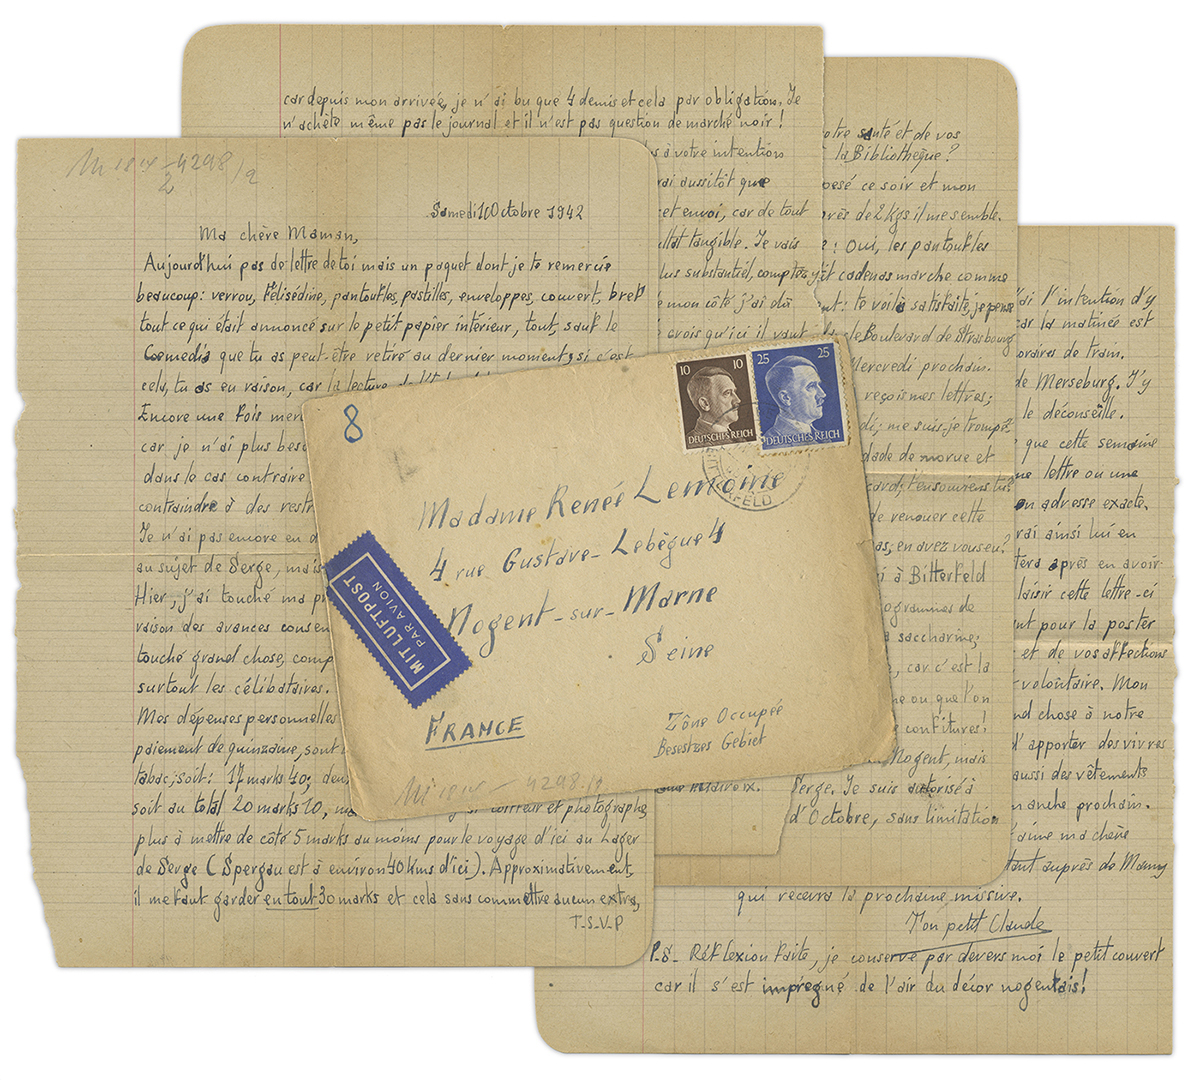 car depuis mon arrivée, je n'ai bu que 4 demis et cela par obligation. Je
n'achète même pas le journal et il n'est pas question de marché noir !
à votre intention
rai aussitôt que
cet envoi, car de tout
ultat tangible. Je vais
lus substantiel, comptes
mon côté j'ai dû
crois qu'ici il vaut
otre santé et de vos
à la Bibliothèque?
posé ce soir et mon
près de 2 kgs il me semble.
: Oui, les pantoufles
cadenas marche comme
: te voilà satisfaite, je pense
le Boulevard de Strasbourg
Mercredi prochain.
reçois mes lettres;
di; me suis-je trompé
dade de morue et
card; t'en souviens tu?
de renouer cette
as; en avez vous eu?
i à Bitterfeld
ogrammes de
a saccharine;
car c'est la
ne ou que l'on
confitures!
Nogent, mais
Serge. Je suis autorisé à
d'Octobre, sans limitation
'ai l'intention d'y
car la matinée est
oraires de train.
de Merseburg. J'y
le déconseille.
que cette semaine
ne lettre ou une
on adresse exacte.
rai ainsi lui en
tera après en avoir
laisir cette lettre-ci
nt pour la poster
et de vos affections
volontaire. Mon
nd chose à notre
d'apporter des vivres
aussi des vêtements
manche prochain.
t'aime ma chère
tant auprès de Mamy
qui recevra la prochaine missive.
Ton petit Claude
P.S- Réflexion faite, je conserve par devers moi le petit couvert
car il s'est imprégné de l'air du décor nogentais!
4298/2
Samedi 10 Octobre 1942
Ma chère Maman,
Aujourd'hui pas de lettre de toi mais un paquet dont je te remercie
beaucoup: verrou, Félisédine, pantoufles, pastilles, enveloppes, couvert, bref
tout ce qui était annoncé sur le petit papier intérieur, tout, sauf le
Comedia que tu as peut-être retiré au dernier moment; si c'est
cela, tu as eu raison, car la lecture
Encore une fois mer
car je n'ai plus beso
dans le cas contraire
contraindre à des restr
Je n'ai pas encore eu d
au sujet de Serge, mais
Hier, j'ai touché ma p
raison des avances consen
touché grand chose, comp
surtout les célibataires.
Mes dépenses personnelles
paiement de quinzaine, sont
tabac; soit: 17 marks 40; deu
soit au total 20 marks 10, coiffeur et photographe,
plus à mettre de côté 5 marks au moins pour le voyage d'ici au Lager
de Serge (Spergau est à environ 40 kms d'ici). Approximativement,
il me faut garder en tout 30 marks et cela sans commettre aucun extra,
T-S-V-P
8
10 10
DEUTSCHES REICH
25 25
DEUTSCHES REICH
Madame Renée Lemoine
4 rue Gustave-Lebègue 4
Nogent-sur-Marne
Seine
MIT LUFTPOST
PAR AVION
FRANCE
Zône Occupée
Besestzes Gebiet
4298/2